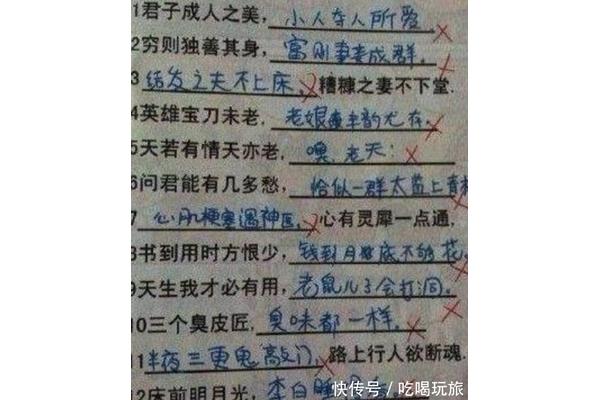 1君子成人之美,小人夺人所爱.
2穷则独善其身,富则妻妾成群.
3结发之夫不上床,糟糠之妻不下堂.
4英雄宝刀未老,老娘风韵尤存.
5天若有情天亦老,噢,老天!
6问君能有几多愁,恰似一群太监上青楼
7心肌梗塞遇神医,心有灵犀一点通,
书到用时方恨少,钱到月底不够花.
9天生我才必有用,老鼠儿子会打洞.
10三个臭皮匠,臭味都一样.
11半夜三更鬼敲门,路上行人欲断魂.
12床前明月光,李白睡
快传号/吃喝玩旅